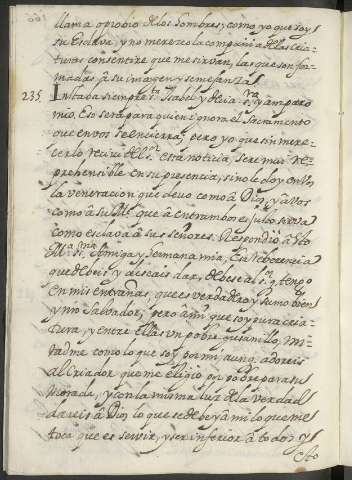 llama oprobio de los hombres; como yo que soy
su Esclava, y no merezco la compañia de las Cria-
turas consentire que me sirvan, las que son for-
madas à su imagen y semejanza
235. Instaba siempre Sta Isabel y decia: Sra y amparo
mio, Eso será para quien ignora el Sacramento
que en vos se encierra; pero yo que sin mere-
cerlo reciví del Sr. Esta noticia, sere muy re-
prehensible en su presencia, sino le doy en Vos
la veneracion que devo como à Dios, y à vos
como à su Me que à entrambos es justo sirva
como esclava à sus señores. Respondió à esto
Ma Sma Amiga y hermana mia, Esta reberencia
que debeis y deseais dar, se debe al Sr. q. tengo
en mis entrañas, que es verdadero y sumo bien
y mo Salvador; pero à mi que soy pura cria-
tura, y entre Ellas un pobre gusanillo, mi-
radme como lo que soy por mi, aunq. adoreis
al Criador que me eligió por pobre para su
morada, y con la misma luz de la verdad
dareis à Dios lo que se debe y à mi lo que me
toca que es servir, y ser inferior à todos; y
esto